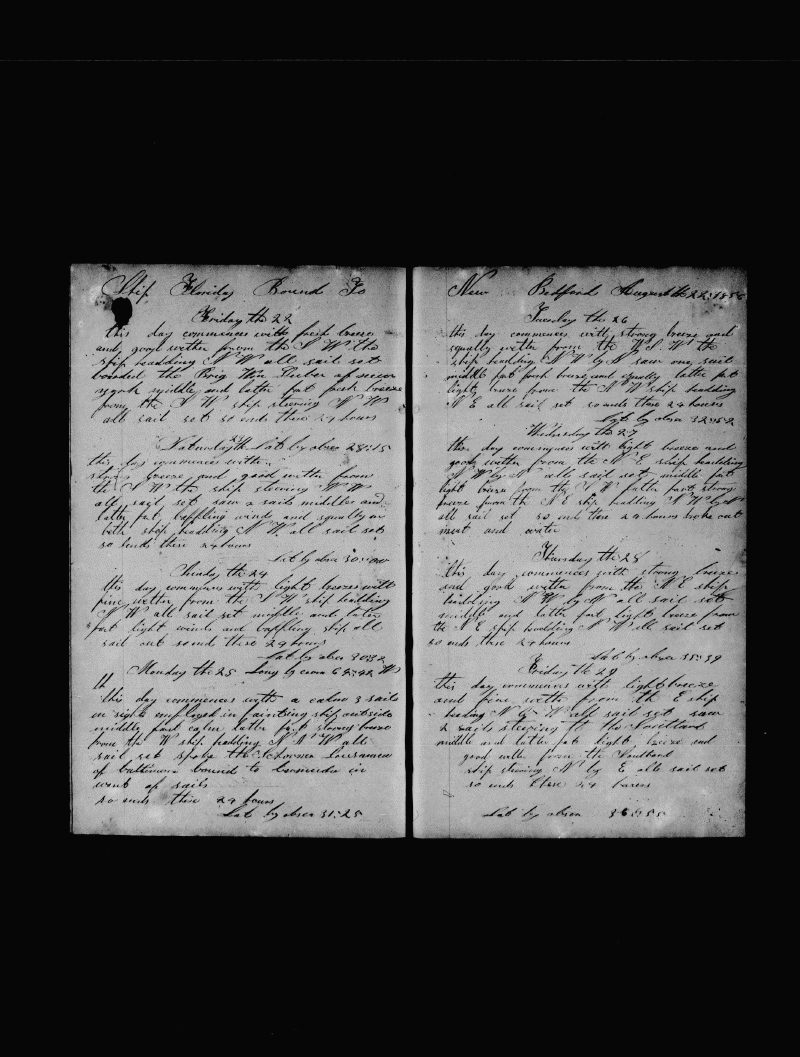 Ship Florida Bound To
Friday the 22
this day commences with fresh breeze
and good wether from the S W the
ship heading N W all sail set
boarded the Brig Wm
middle and latter pat fresh breeze
from the S W ship steering N W
all sail set so ends these 24 hours
Saturday Lat by obser 28:15
this day commences with
strong breeze and good wether from
the S W the ship steering N W
all sail set saw 2 sails middle and
latter pat baffling winds and squally
ship heading N W all sail set
so ends these 24 hours
Lat by obser 30:00
the 24
this day commences with light breezes with
fine wether from the ship heading
N W all sail set middle and latter
part light winds and baffling ship all
sail out so ends these 24 hours
Lat by obser 30:32
Monday the 25 Long by 69:42 W
th
this day commences with a calm 3 sails
in sight employed in painting ship outside
middle part calm latter part strong breeze
from the W ship heading N N W all
sail set spoke the Schooner
of baltimore bound to in
want of sails
so ends these 24 hours
Lat by obser 31:25
New Bedford August the 22: 185
Tuesday the 26
this day commences with strong breeze and
squally wether from the W S W the
ship heading N W by N saw one sail
middle part fresh breeze and squally latter pat
light breeze from the N W ship heading
N E all sail set so ends these 24 hours
Lat by obser 32:52
Wednesday the 27
this day commences with light breeze and
good wether from the N E ship heading
N W by N all sail set middle pat
light breeze from the latter part strong
breeze from the ship heading N W by N
all sail set so end these 24 hours broke out
meat and
Thursday the 28
this day commences with strong breezes
and good wether from the N E ship
heading N W by N all sail set
middle and latter part light breeze from
the N E ship heading N W all sail set
so ends these 24 hours
Lat by obser 35:39
Friday the 29
this day commences with light breeze
and fine wether from the E ship
heading N by W all sail set saw
2 sails steering to the
middle and latter pat light breeze and
good wether from the
ship steering N by E all sail set
so ends these 24 hours
Lat by obser 36:55